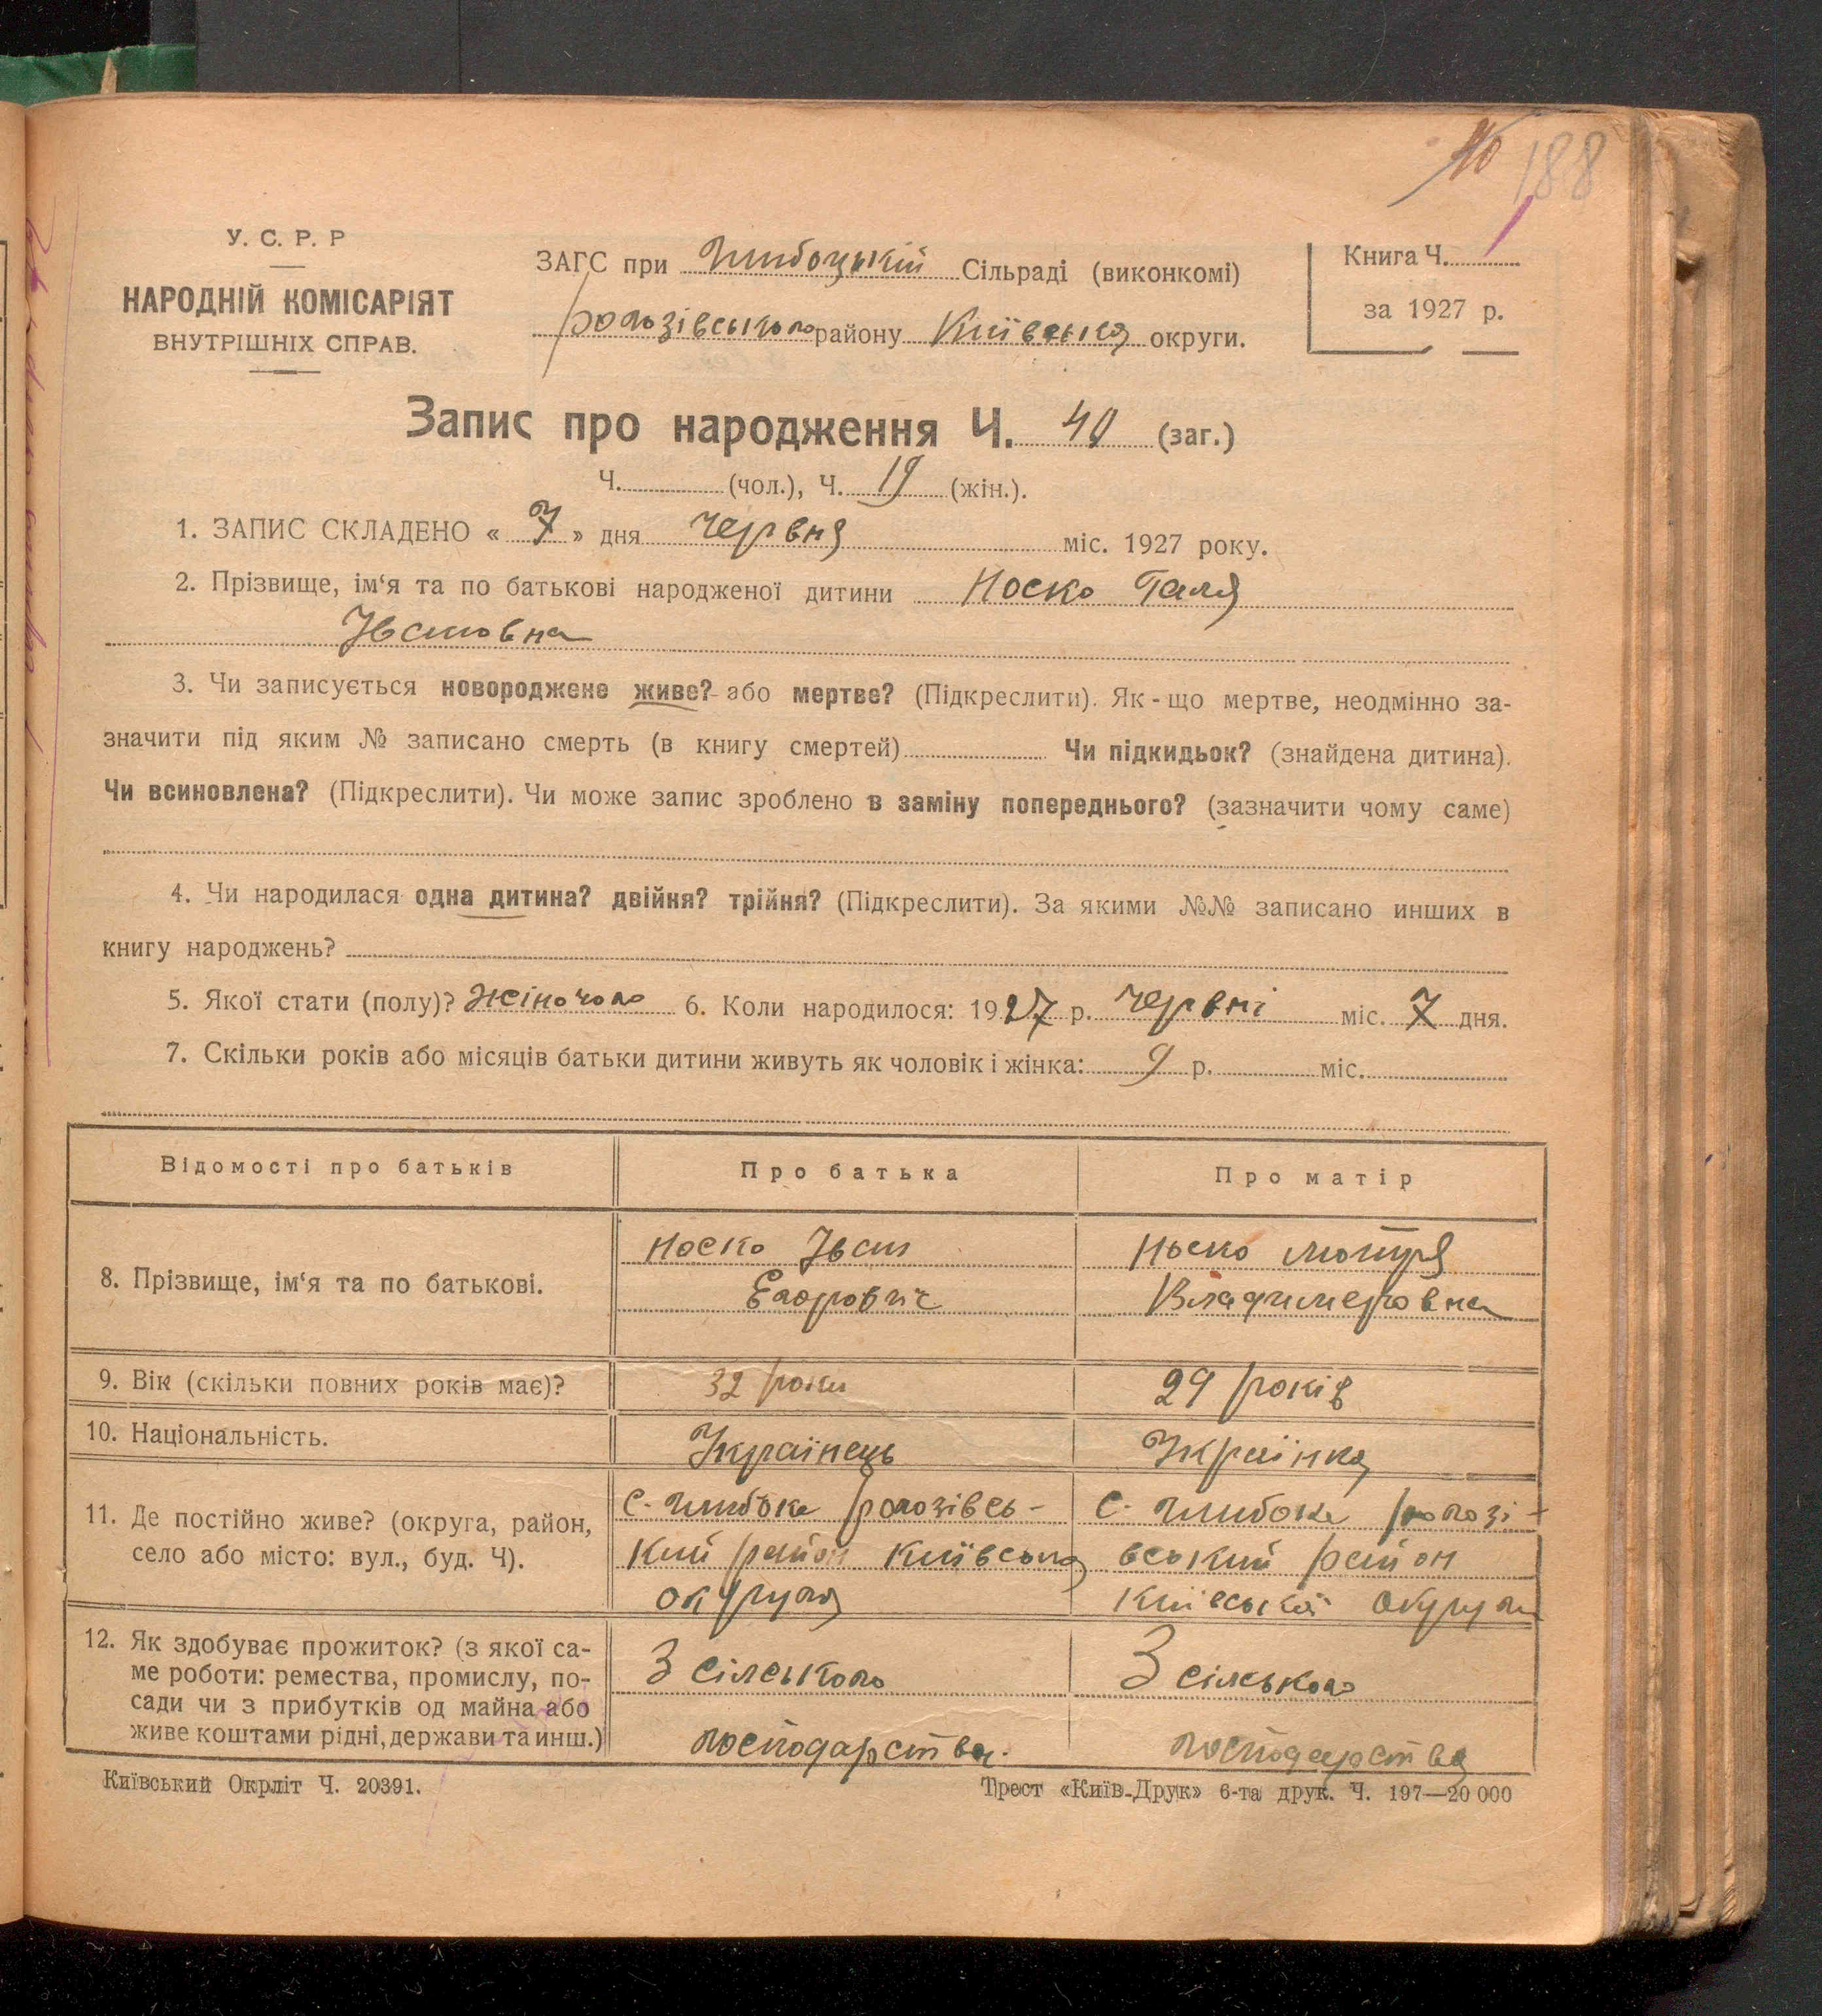 40 188
У. С. Р. Р
НАРОДНІЙ КОМІСАРІЯТ
ВНУТРІШНІХ СПРАВ.
ЗАГС при Глибоцькій Сільраді (виконкомі)
рогозівського району Київська округи.
Книга Ч.
за 1927 р.
Запис про народження Ч. 40 (заг.)
Ч. (чол.), Ч. 19 (жін.).
1. ЗАПИС СКЛАДЕНО « 7 » дня червня міс. 1927 року.
2. Прізвище, ім‘я та по батькові народженої дитини Носко Галя
Івановна
3. Чи записується новороджене живе? або мертве? (Підкреслити). Як - що мертве, неодмінно за-
значити під яким № записано смерть (в книгу смертей) Чи підкидьок? (знайдена дитина).
Чи всиновлена? (Підкреслити). Чи може запис зроблено в заміну попереднього? (зазначити чому саме)
4. Чи народилася одна дитина? двійня? трійня? (Підкреслити). За якими №№ записано инших в
книгу народжень?
5. Якої стати (полу)? жіночого 6. Коли народилося: 1927 р. червні міс. 7 дня.
7. Скільки років або місяців батьки дитини живуть як чоловік і жінка: 9 р. міс.
Відомості про батьків Про батька Про матір
8. Прізвище, ім‘я та по батькові.
Носко Іван
Егорович
Носко мотря
Владимеровна
9. Вік (скільки повних років має)? 32 роки 29 років
10. Національність. Українець Українка
11. Де постійно живе? (округа, район,
село або місто: вул., буд. Ч).
с. глибоке рогозівсь-
кий район Київська
округа
с. глибоке рогозі-
вський район
київська округа
12. Як здобуває прожиток? (з якої са-
ме роботи: ремества, промислу, по-
сади чи з прибутків од майна або
живе коштами рідні, держави та инш.)
З сільського
господарства.
З сільського
господарства
Київський Окрліт Ч. 20391.
Трест «Київ-Друк» 6-та друк. Ч. 197—20 000